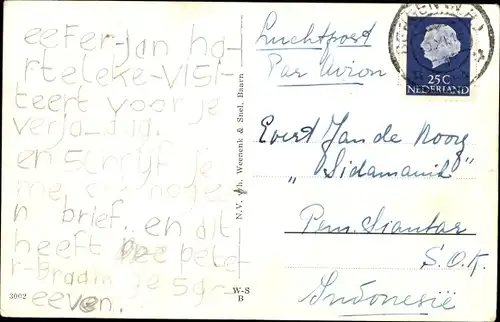 eefer-jan ha-
rteleke-VISI-
teert voor je
verja_dag.
en schrijf je
me
n brief.. en dit
heeft peter
r-Braam je
eeven.
3002
N.V. v/h. Weenenk & Snel, Baarn
W-S
B
Luchtpost
Par Avion
25C
NEDERLAND
Evert Jan de Nooy
„Sidamanik"
Pem. Siantar
S.O.K.
Indonesië